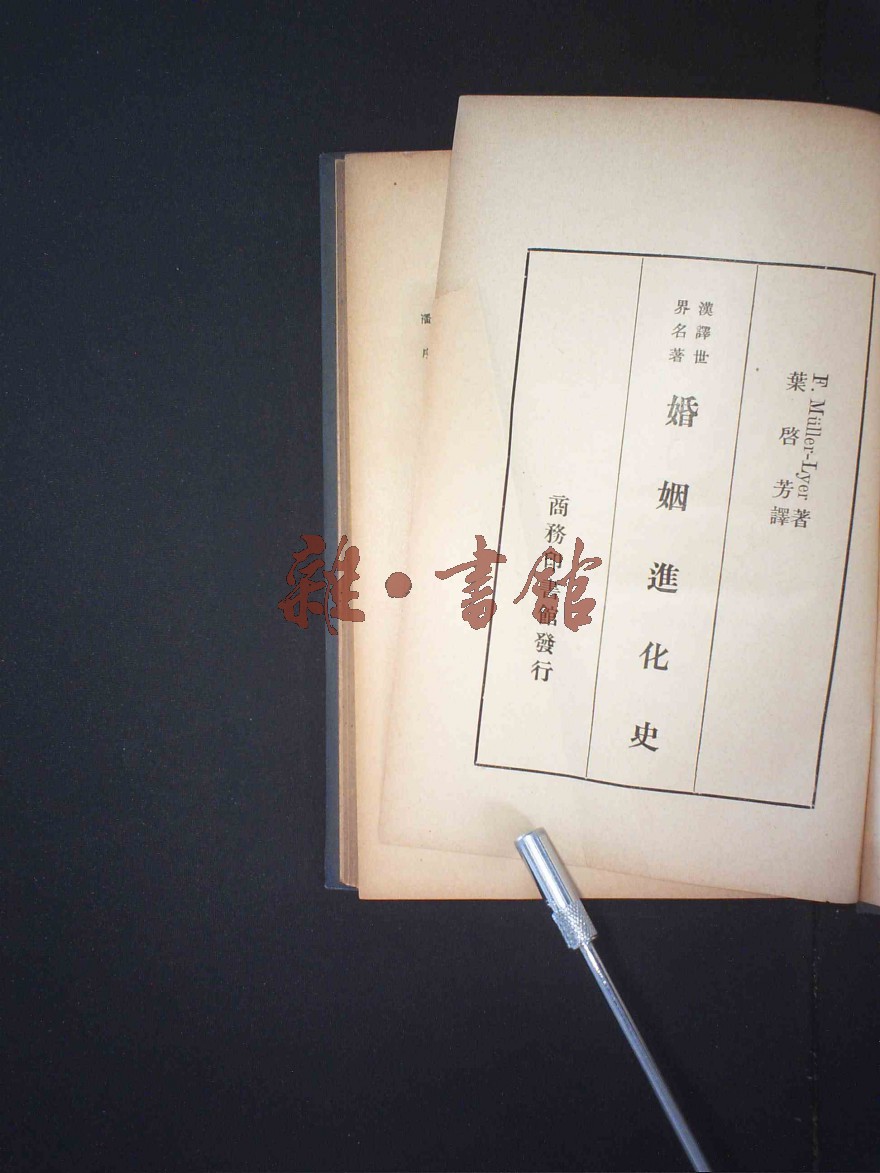 F. Müller-Lyer 著
葉啓芳譯
漢譯世
界名著
婚姻進化史
商務印書館發行
潘序
雜·書館